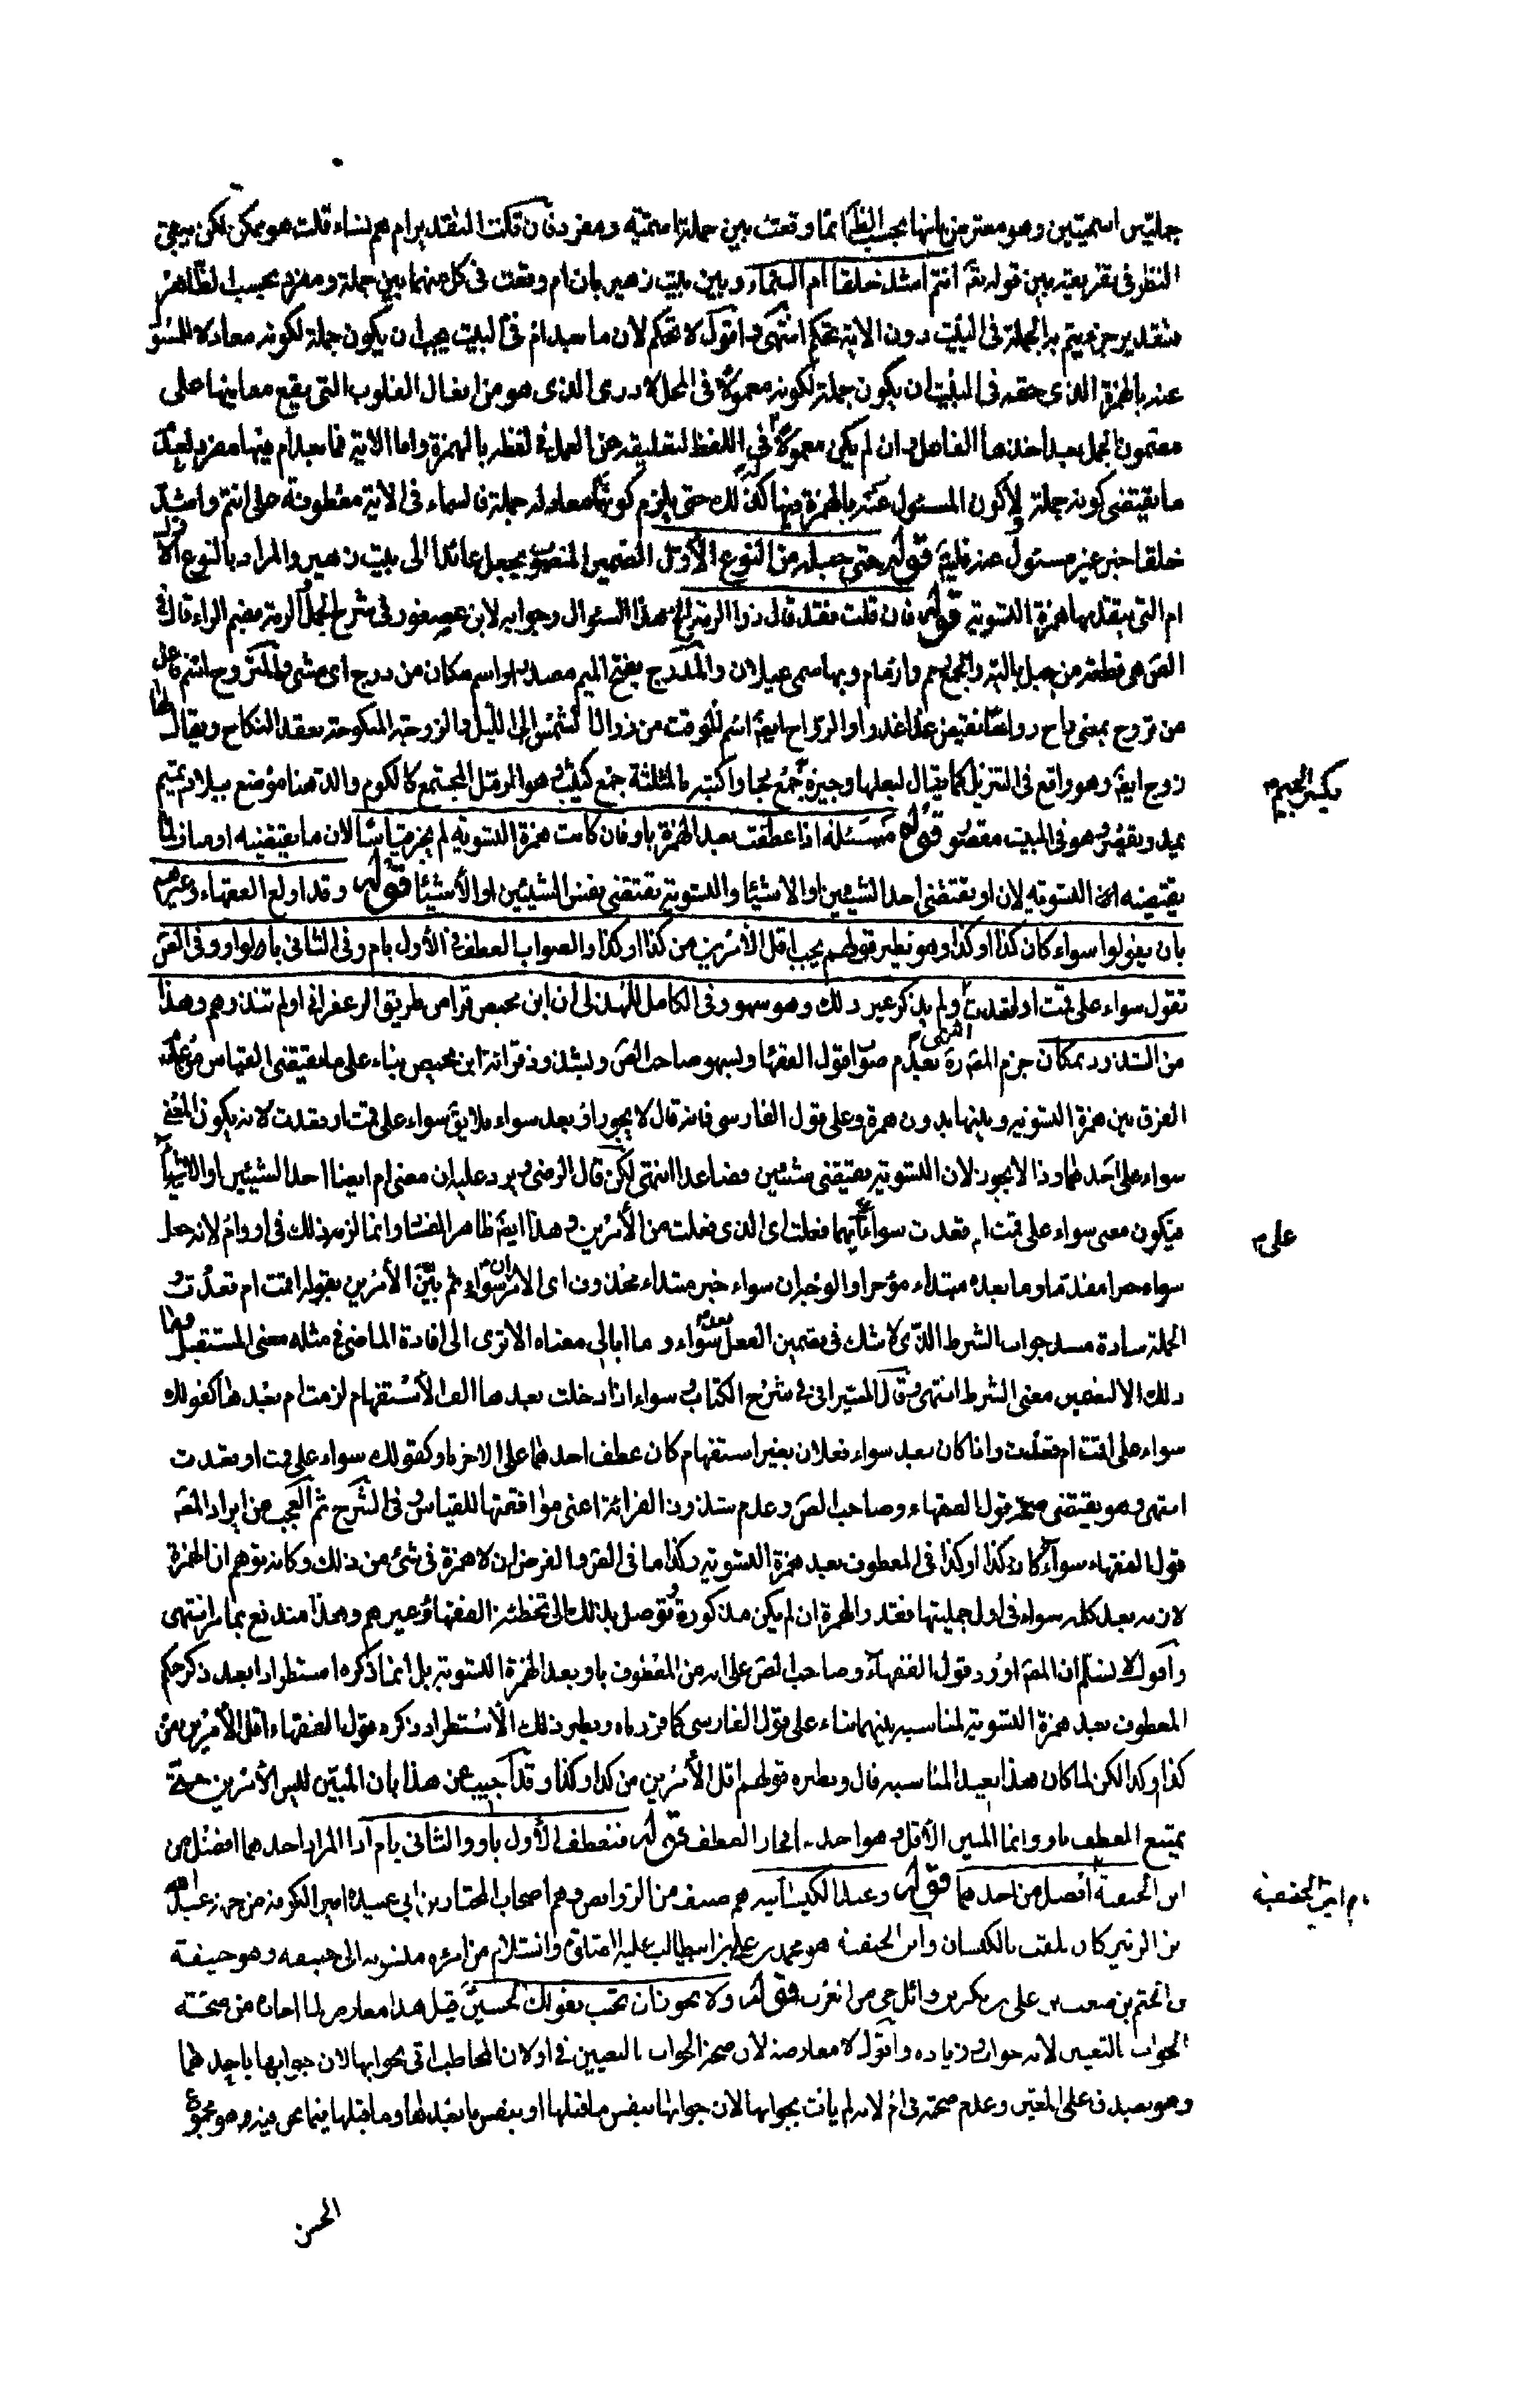 جملتين اسميتين وهو معترض بانها بحسب الظ انما وقعت بين جملة اسمية ومفرد فان قلت التقدير ام هم نساء قلت هو ممكن لكن يبقى
النظر في تفريقه بين قوله تع أأنتم اشد خلقا ام السماء وبين بيت زهير بان ام وقعت في كل منهما بين جملة ومفرد بحسب الظاهر
فتقدير جزء يتم به الجملة في البيت دون الآية تحكم انتهى واقول لا تحكم لان ما بعد ام في البيت يجب ان يكون جملة لكونه معادلا للمسئو
عنه بالهمزة الذي حقه في البيت ان يكون جملة لكونه معمولا في المحل لادرى الذي هو من افعال القلوب التي يقع معانيها على
مضمون الجمل بعد اخذها الفاعل وان لم يكن معمولا في اللفظ لتعليقه عن العمل في لفظه بالهمزة واما الآية فما بعد ام فيها مفرد لفقد
ما يقتضى كونه جملة ولا كون المسئول عنه بالهمزة فيها كذلك حتى يلزم كون معادله جملة فالسماء في الآية معطوفة على انتم واشد
خلقا خبر غير مسئول عنه فليتم قوله حتى جعله من النوع الأول الضمير المنصوب بجعل عائد الى بيت زهير والمراد بالنوع الأول
ام التي يتقدمها همزة التسوية قوله فان قلت فقد قال ذو الرمة الخ هذا السؤال وجوابه لابن عصفور في شرح الجمل الرمة بضم الراء قال في
الص هي قطعة من حبل بالية والجمع رمم ورمام وبها سمى غيلان والمدرج بفتح الميم مصدر او اسم مكان من درج اى مشى والمتروح اسم فاعل
من تروح بمعنى راح رواحا نقيض غدا غدوا والرواح ايض اسم للوقت من زوال الشمس الى الليل والزوجة المنكوحة بعقد النكاح ويقال لها
زوج ايض وهو واقع في التنزيل كما يقال لبعلها وجيزة جمع لجار واكثبة بالمثلثة جمع كثيب وهو الرمل المجتمع كالكوم والدهنا موضع ببلاد تميم
يمد ويقصر وهو في البيت مقصور قوله مسئلة اذا عطفت بعد الهمزة باو فان كانت همزة التسوية لم يجز قياسا لان ما يقتضيه او مناف لما
يقتضيه التسوية لان او يقتضى احد الشيئين او الاشياء والتسوية تقتضى نفس الشيئين او الأشياء قوله وقد اولع الفقهاء وغيرهم
بان يقولوا سواء كان كذا او كذا وهو نظير قولهم يجب اقل الأمرين من كذا او كذا والصواب العطف في الأول بام وفي الثاني بالواو وفي الص
تقول سواء على قمت او قعدت ولم يذكر غير ذلك وهو سهو وفي الكامل للهذلى ان ابن محيص قرأ من طريق الزعفرانى او لم تنذرهم وهذا
من الشذوذ بمكان جزم المص ره بعدم صواب قول الفقهاء وبسهو صاحب الص وبشذوذ قرائة ابن محيص بناء على ما يقتضى القياس من عدم
الفرق بين همزة التسوية وبينها بدون همزة وعلى قول الفارسى فانه قال لا يجوز او بعد سواء فلا يق سواء على قمت او قعدت لانه يكون المعنى
سواء على احدهما وذا لا يجوز لان التسوية يقتضى شيئين فصاعدا انتهى لكن قال الرضى ويرد عليه ان معنى ام ايضا احد الشيئين او الاشياء
فيكون معنى سواء على قمت ام قعدت سواء على ايهما فعلت اى الذي فعلت من الأمرين وهذا ايض ظاهر الفساد وانما لزمه ذلك في او وام لانه جعل
سواء خبرا مقدما وما بعده مبتدأ مؤخرا والوجه ان سواء خبر مبتداء محذوف اى الامران سواء ثم بين الأمرين بقوله اقمت ام قعدت و
الجملة سادة مسد جواب الشرط الذي لا شك في تضمين الفعل بعد سواء و ما ابالى معناه الا ترى الى افادة الماضى في مثله معنى المستقبل وما
ذلك الا لتضمين معنى الشرط انتهى وقال السيرافى في شرح الكتاب وسواء اذا دخلت بعدها الف الأستفهام لزمت ام بعدها كقولك
سواء على اقمت ام قعدت واذا كان بعد سواء فعلان بغير استفهام كان عطف احدهما على الاخر باو كقولك سواء على قمت او قعدت
انتهى وهو يقتضى صحة قول الفقهاء وصاحب الص وعدم شذوذ القرائة اعنى موافقتها للقياس وفي الشرح ثم العجب من ايراد المص
قول الفقهاء سواء كان كذا او كذا في المعطوف بعد همزة التسوية وكذا ما في الص والفرض ان لا همزة في شئ من ذلك وكانه توهم ان الهمزة
لازمة بعد كلمة سواء في اول جملتيها فقدر الهمزة ان لم يكن مذكورة وتوصل بذلك الى تخطئة الفقهاء وغيرهم وهذا مندفع بما مر انتهى
واقول لا نسلم ان المص اورد قول الفقهاء وصاحب الص على انه من المعطوف باو بعد الهمزة التسوية بل انما ذكره استطرادا بعد ذكر حكم
المعطوف بعد همزة التسوية لمناسبة بينهما بناء على قول الفارسى كما قررناه ونظير ذلك الأستطراد ذكره قول الفقهاء اقل الأمرين من
كذا او كذا لكن لما كان هذا بعيد المناسبة قال ونظيره قولهم اقل الأمرين من كذا وكذا وقد اجيب عن هذا بان المبين ليس الأمرين حتى
يمتنع العطف باو وانما المبين الأقل وهو احد فجاز العطف قوله فتعطف الأول باو والثاني بام اذ المراد احدهما افضل من
ابن الحنفية افضل من احدهما قوله وعند الكيسانية هم صنف من الروافض وهم اصحاب المختار بن ابى عبيد امير الكوفة من جهة عبد الله
بن الزبير كان يلقب بالكيسان وابن الحنفية هو محمد بن على بن ابيطالب عليه الصلوة والسلام من امرءة منسوبة الى حنيفة وهو حنيفة
بن لجيم بن صعب بن على بن بكر بن وائل حى من العرب قوله ولا يجوز ان تجيب بقولك الحسين قيل هذا معارض لما اجازه من صحة
الجواب بالتعيين لانه جواب وزيادة واقول لا معارضة لان صحة الجواب بالتعيين في او لان المخاطب اتى بجوابها لان جوابها باحدهما
وهو يصدق على المعين وعدم صحته في ام لانه لم يات بجوابها لان جوابها بنفس ما قبلها او بنفس ما بعدها وما قبلها فيما نحن فيه وهو مجموع
بكسر الجيم
على
ابن الحنفية
الحسن